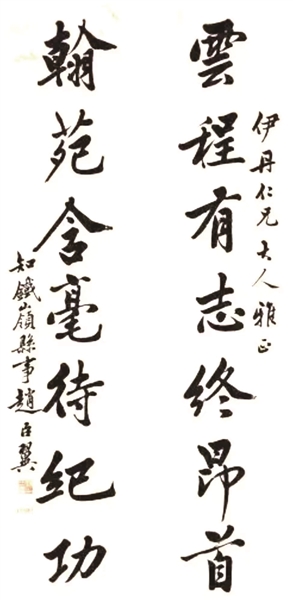 伊丹仁兄大人雅正
雲程有志終昂首
翰苑含毫待紀功
知鐵嶺縣事趙臣翼